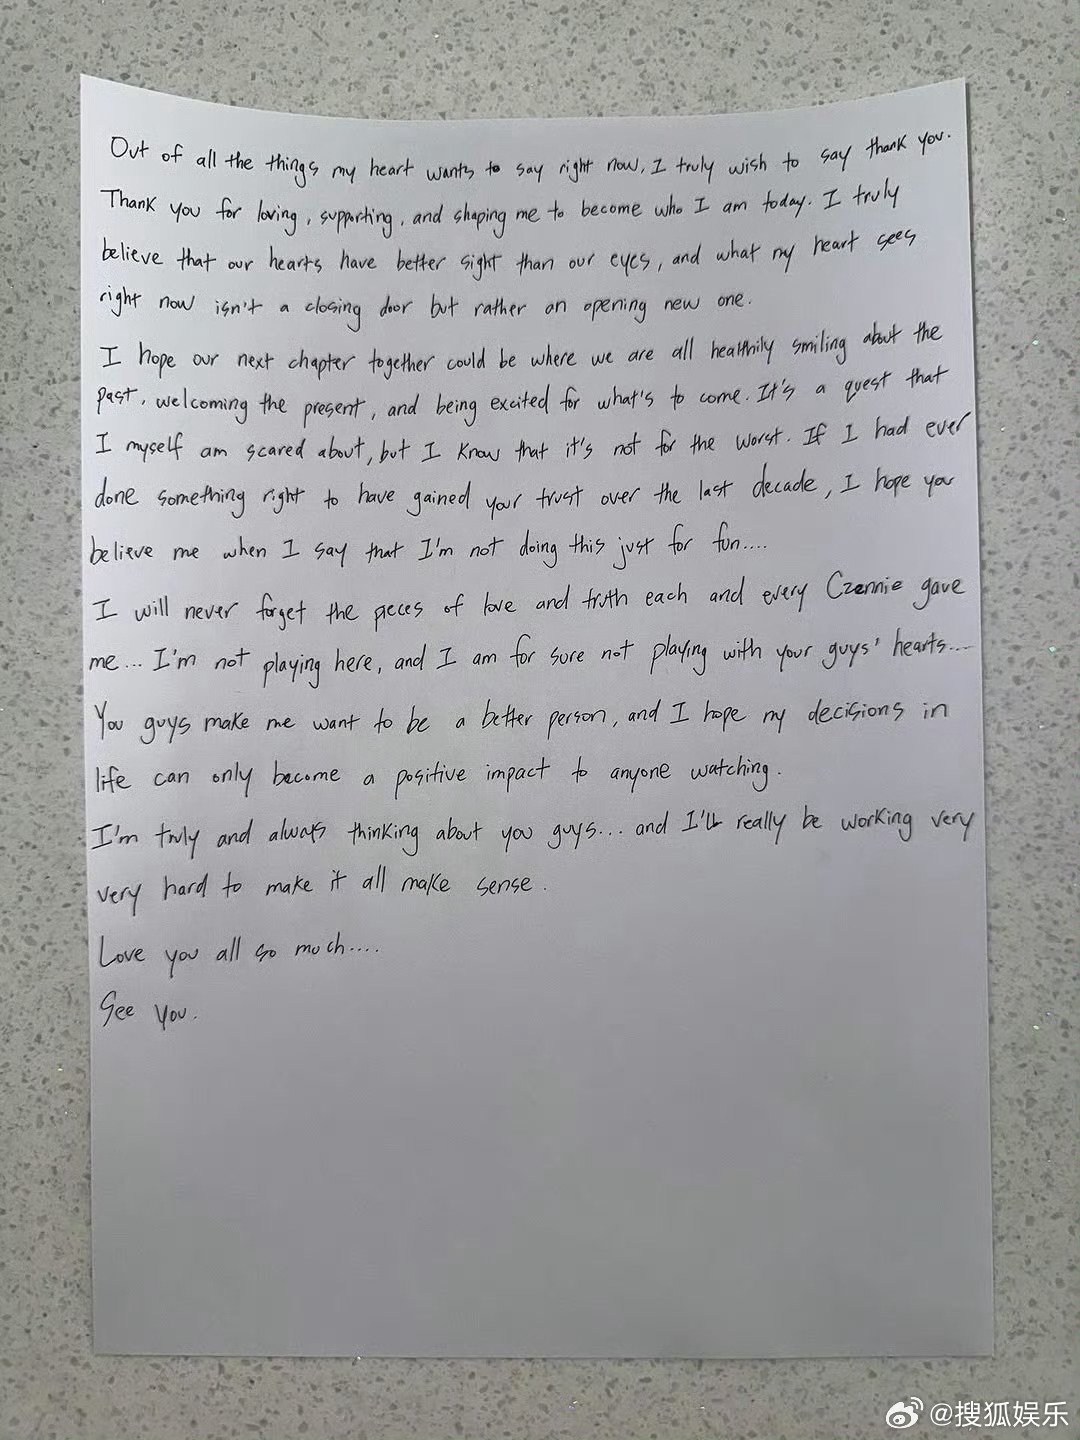 Out of all the things my heart wants to say right now, I truly wish to say thank you.
Thank you for loving, supporting, and shaping me to become who I am today. I truly
believe that our hearts have better sight than our eyes, and what my heart sees
right now isn't a closing door but rather an opening new one.
I hope our next chapter together could be where we are all healthily smiling about the
past, welcoming the present, and being excited for what's to come. It's a quest that
I myself am scared about, but I know that it's not for the worst. If I had ever
done something right to have gained your trust over the last decade, I hope you
believe me when I say that I'm not doing this just for fun....
I will never forget the pieces of love and truth each and every Czennie gave
me... I'm not playing here, and I am for sure not playing with your guys' hearts....
You guys make me want to be a better person, and I hope my decisions in
life can only become a positive impact to anyone watching.
I'm truly and always thinking about you guys... and I'll really be working very
very hard to make it all make sense.
Love you all so much....
See you.
@搜狐娱乐